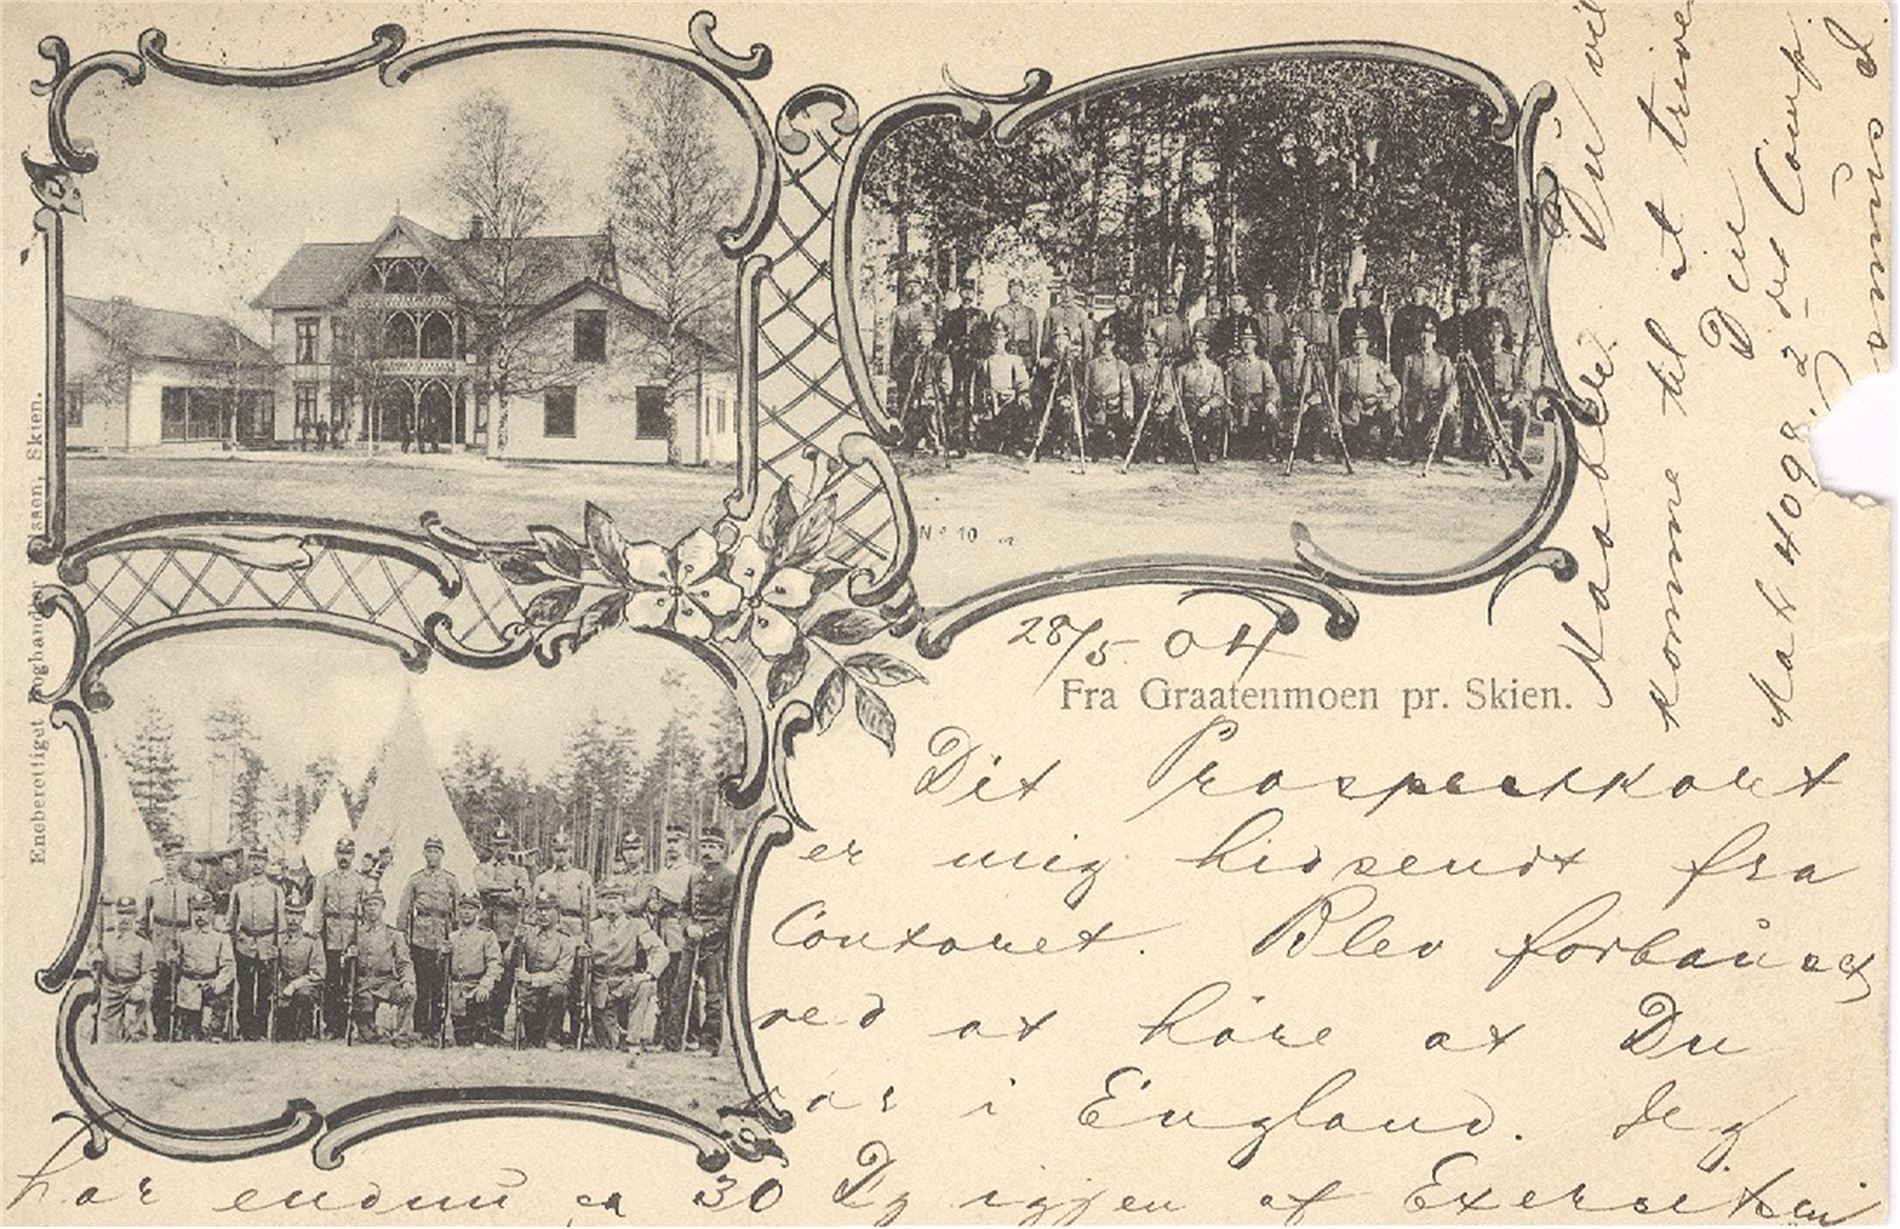 Eneberettiget Boghandler Nissen, Skien.
No 10
28/5 04
Fra Graatenmoen pr. Skien.
Dit Prospectkort
er mig hidsendt fra
Contoret. Blev forbauset
ved at höre at Du
var i England. Jeg
har endnu ca 30 Dg igjen af
Haaber Du vil
komme til at trives
Din
Mat 4098 2det Comp.